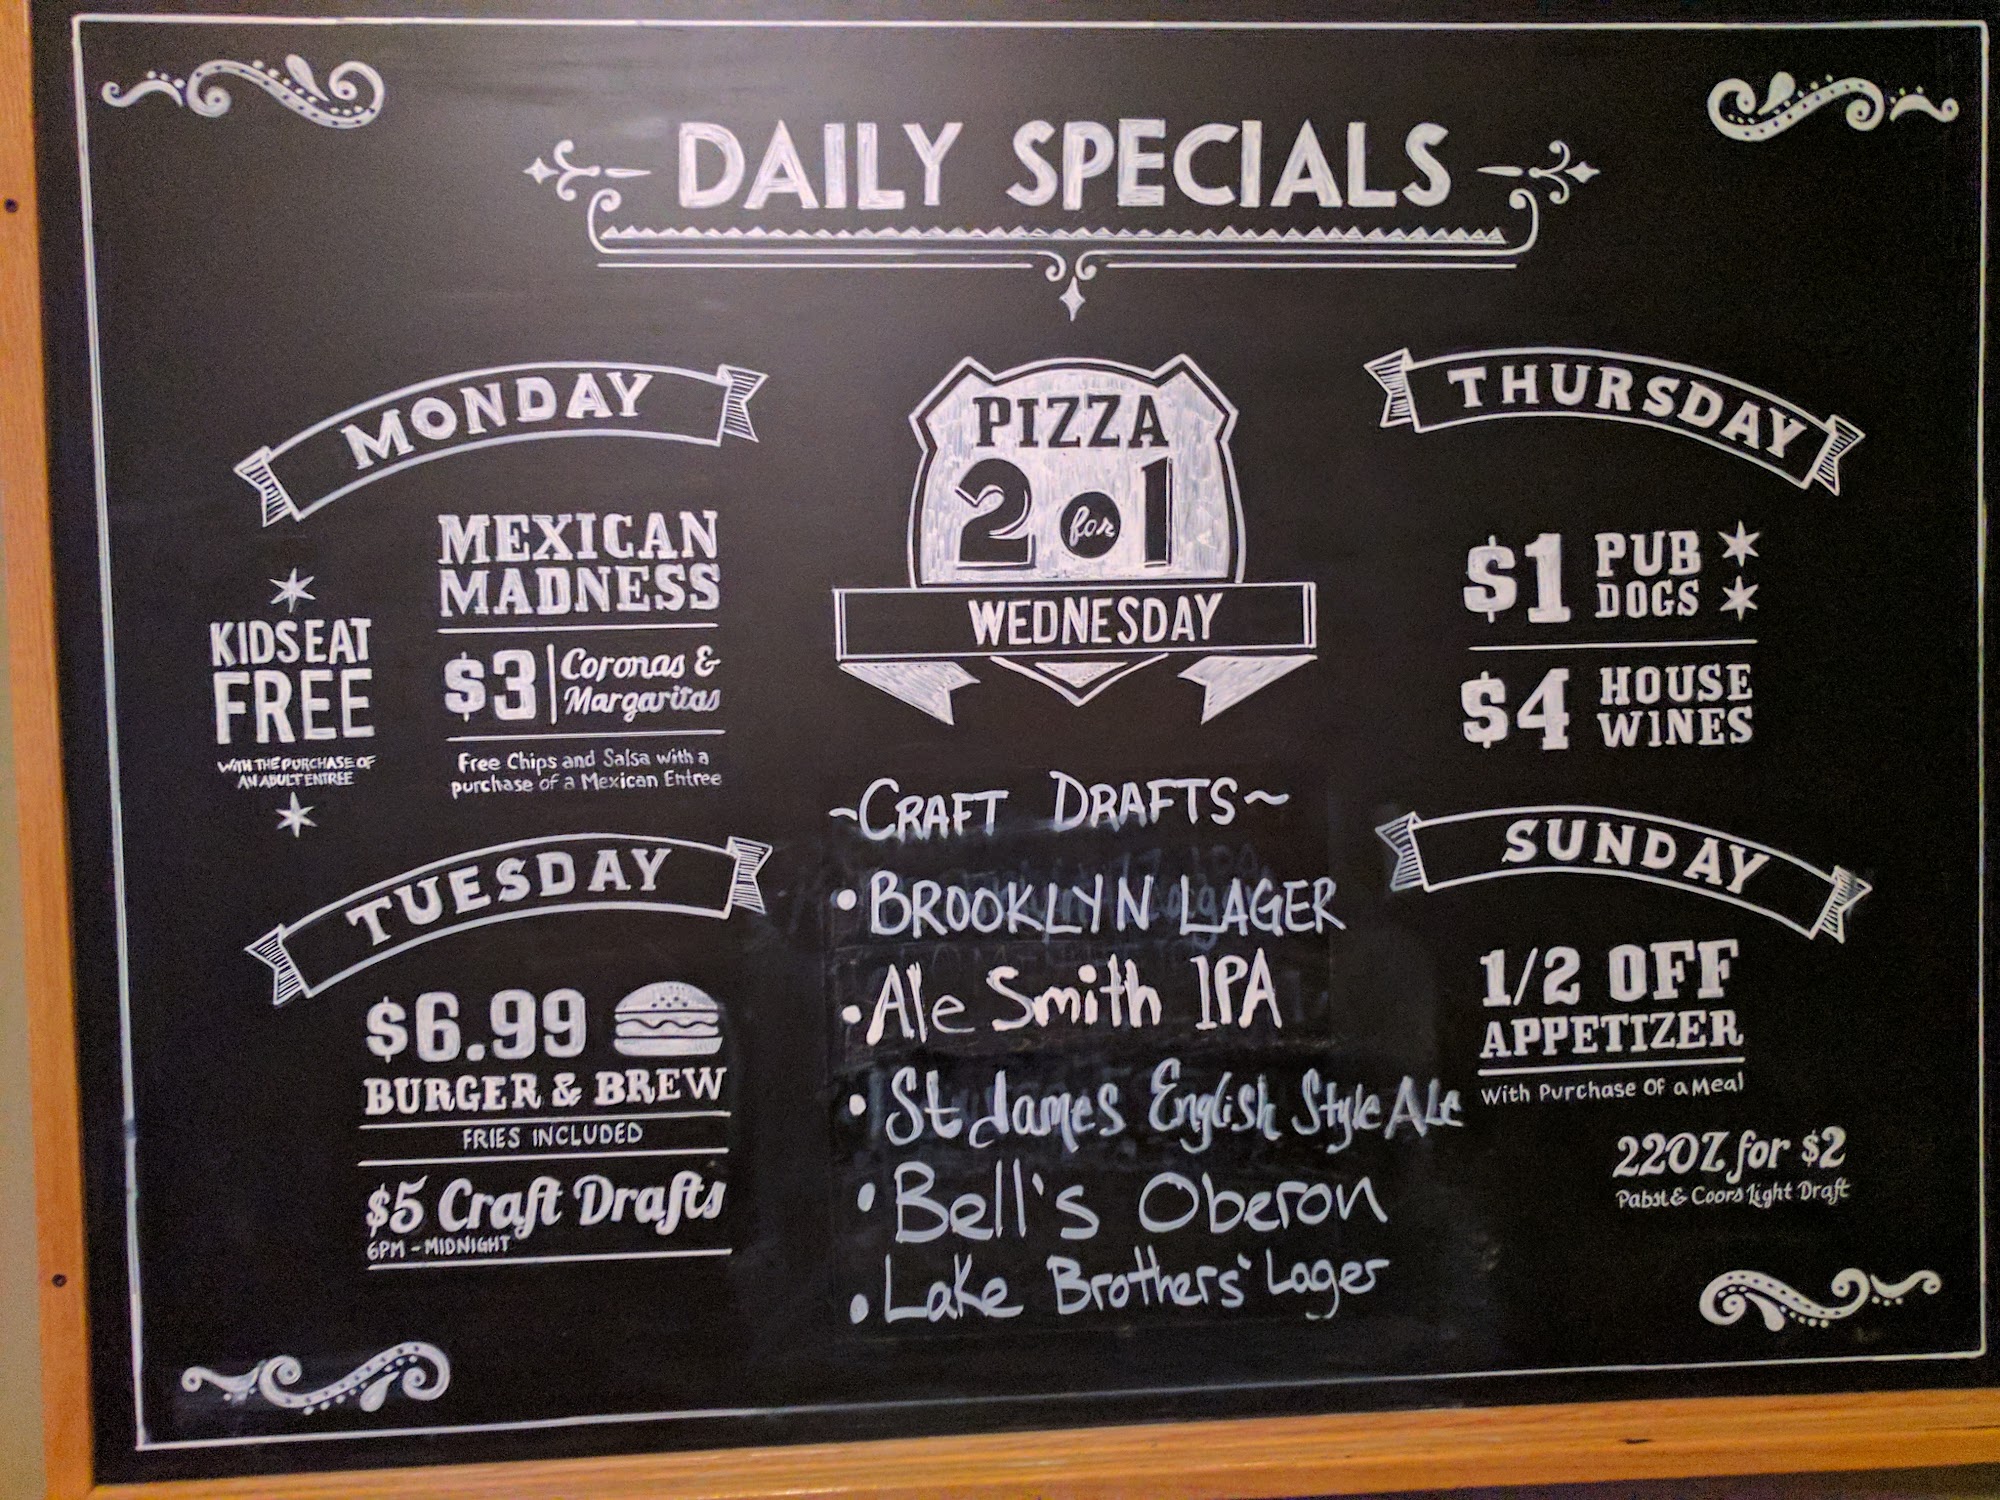 DAILY SPECIALS
MONDAY
MEXICAN
MADNESS
$3 Coronas &
Margaritas
Free Chips and Salsa with a
purchase of a Mexican Entree
KIDS EAT
FREE
WITH THE PURCHASE OF
AN ADULT ENTREE
TUESDAY
$6.99
BURGER & BREW
FRIES INCLUDED
$5 Craft Drafts
6PM - MIDNIGHT
PIZZA
2 for 1
WEDNESDAY
~CRAFT DRAFTS~
• BROOKLYN LAGER
• Ale Smith IPA
• St James English Style Ale
• Bell's Oberon
• Lake Brothers' Lager
THURSDAY
$1 PUB
DOGS
$4 HOUSE
WINES
SUNDAY
1/2 OFF
APPETIZER
With Purchase Of a Meal
22OZ for $2
Pabst & Coors Light Draft